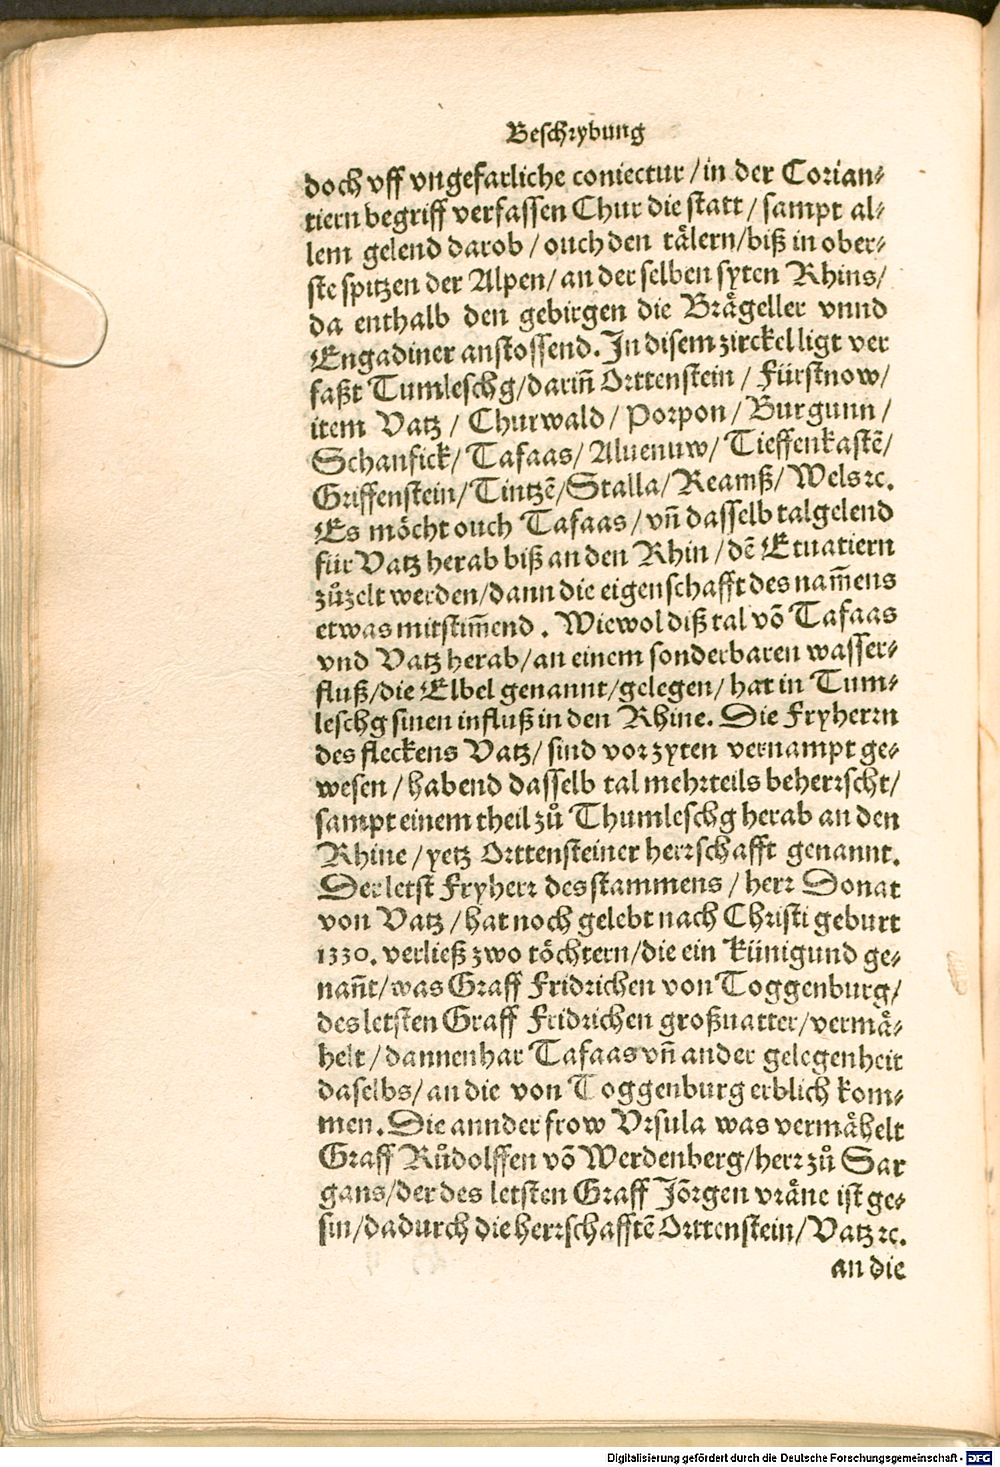 Beschrybung
doch vff vngefarliche coniectur / in der Corian-
tiern begriff verfassen Chur die statt / sampt al-
lem gelend darob / ouch den tälern / biß in ober-
ste spitzen der Alpen / an der selben syten Rhins /
da enthalb den gebirgen die Brägeller vnnd
Engadiner anstossend. In disem zirckel ligt ver
faßt Tumleschg / dariñ Orttenstein / Fürstnow /
item Vatz / Churwald / Porpon / Burgunn /
Schanfick / Tafaas / Aluenuw / Tieffenkastē /
Griffenstein / Tintzē / Stalla / Reamß / Wels ꝛc.
Es möcht ouch Tafaas / vñ dasselb talgelend
für Vatz herab biß an den Rhin / dē Etuatiern
zůzelt werden / dann die eigenschafft des nam̃ens
etwas mitstim̃end. Wiewol diß tal võ Tafaas
vnd Vatz herab / an einem sonderbaren wasser-
fluß / die Elbel genannt / gelegen / hat in Tum-
leschg sinen influß in den Rhine. Die Fryherrn
des fleckens Vatz / sind vor zyten vernampt ge-
wesen / habend dasselb tal mehrteils beherrscht /
sampt einem theil zů Thumleschg herab an den
Rhine / yetz Orttensteiner herrschafft genannt.
Der letst Fryherr des stammens / herr Donat
von Vatz / hat noch gelebt nach Christi geburt
1330. verließ zwo töchtern / die ein Künigund ge-
nañt / was Graff Fridrichen von Toggenburg /
des letsten Graff Fridrichen großuatter / vermä-
helt / dannenhar Tafaas vñ ander gelegenheit
daselbs / an die von Toggenburg erblich kom-
men. Die annder frow Vrsula was vermähelt
Graff Růdolffen võ Werdenberg / herr zů Sar
gans / der des letsten Graff Jörgen vräne ist ge-
sin / dadurch die herrschafftē Orttenstein / Vatz ꝛc.
an die
Digitalisierung gefördert durch die Deutsche Forschungsgemeinschaft - DFG